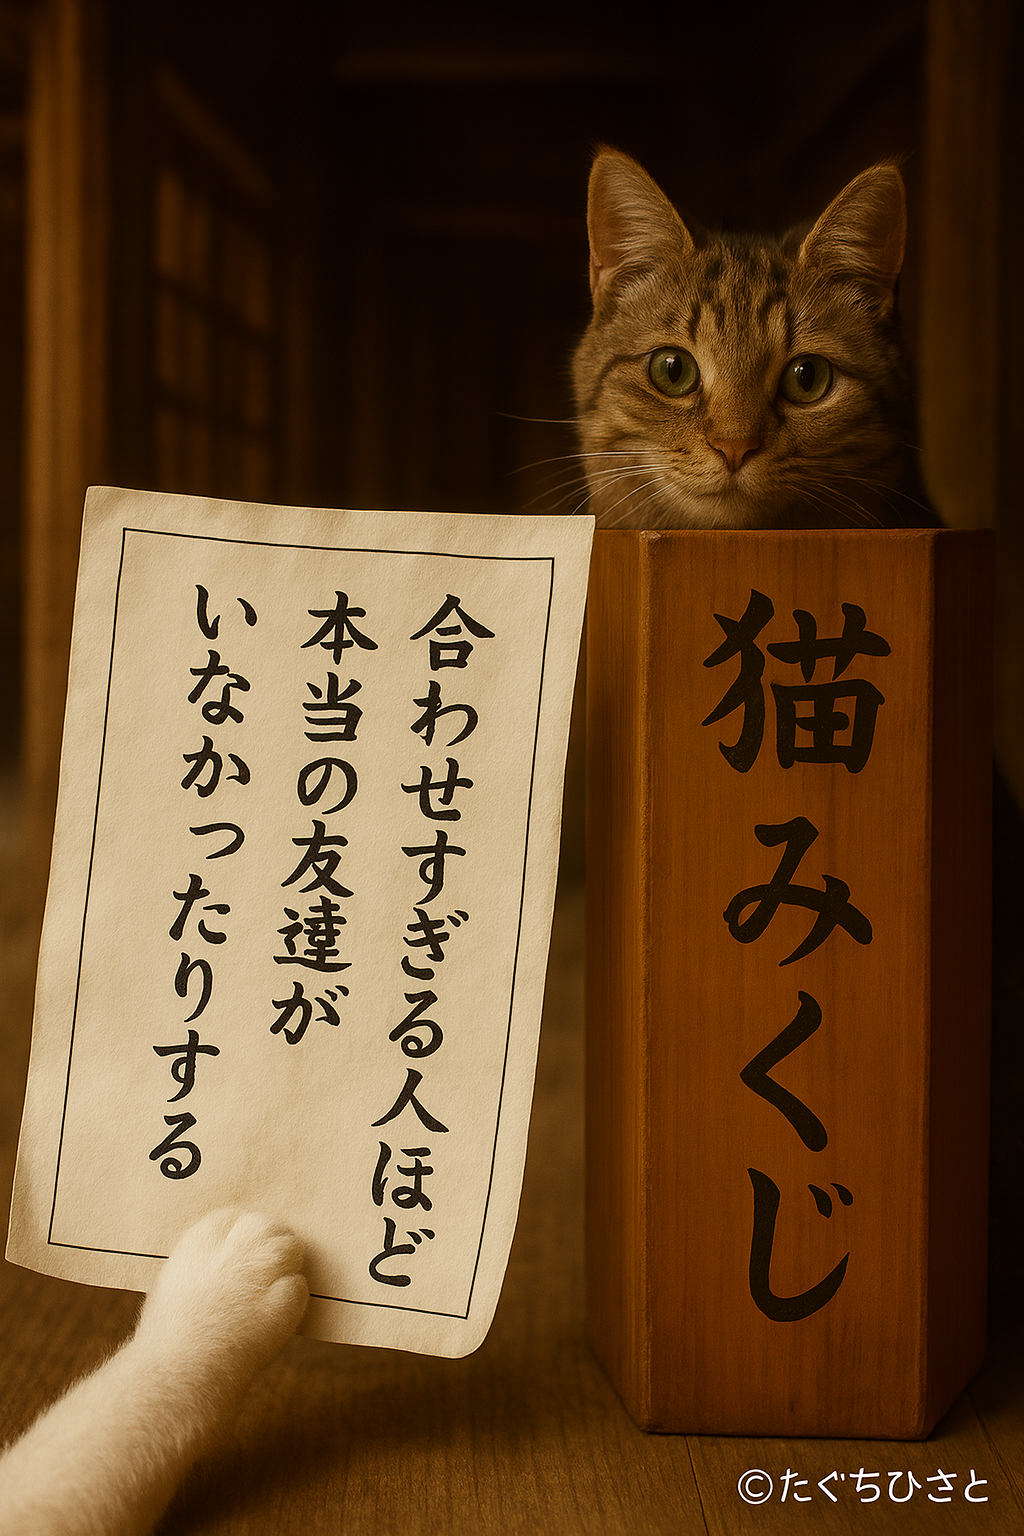 猫みくじ
合わせすぎる人ほど
本当の友達が
いなかったりする
©たぐちひさと